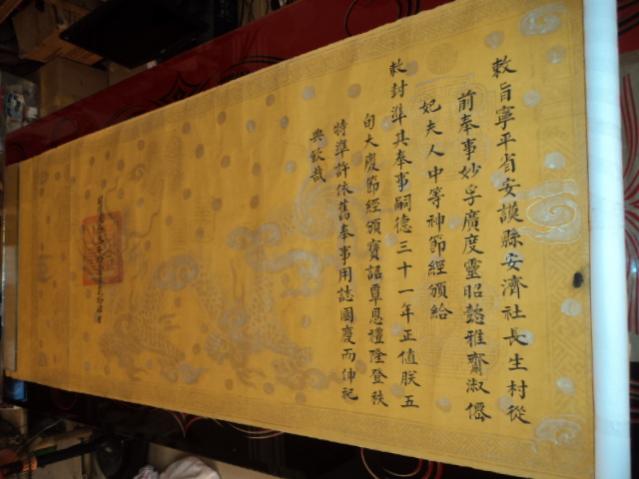 敕旨寧平省安謨縣安濟社長生村從
前奉事妙孚廣度靈昭懿雅齋淑儷
妃夫人中等神節經頒給
敕封準其奉事嗣德三十一年正值朕五
旬大慶節經頒寶詔覃恩禮隆登秩
特準許依舊奉事用誌國慶而伸祀
典欽哉